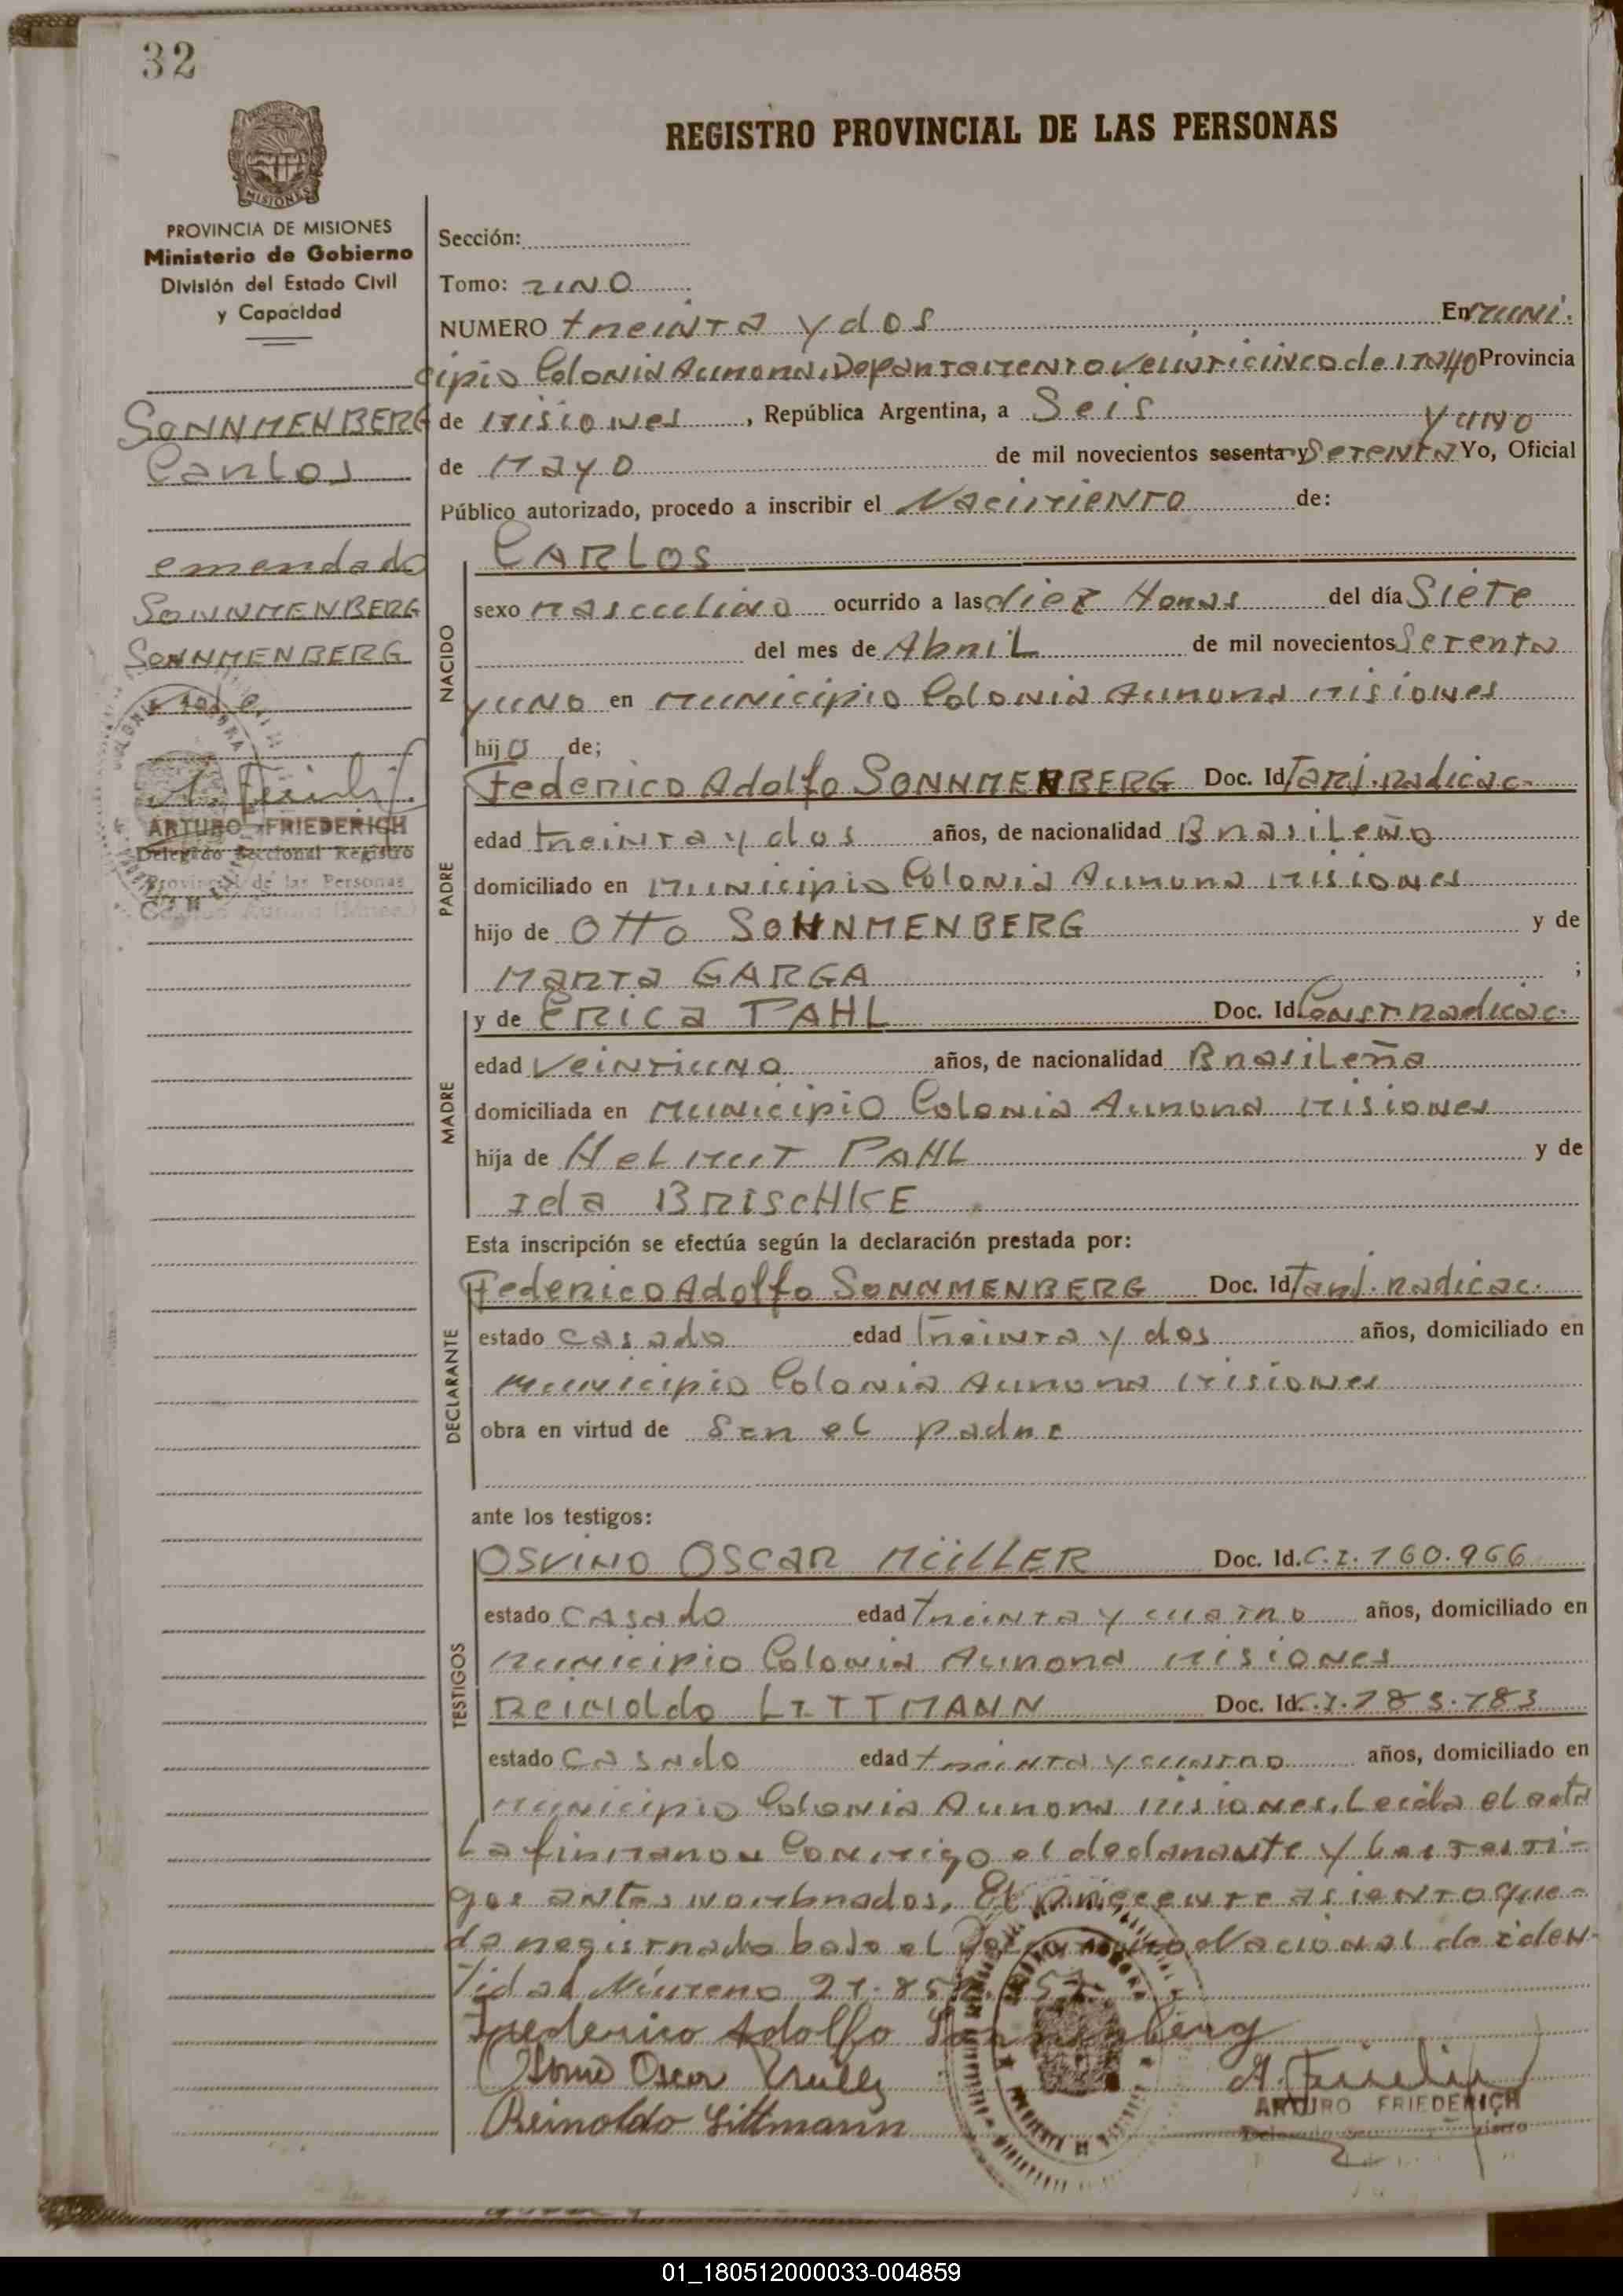 32
MISIONES
REGISTRO PROVINCIAL DE LAS PERSONAS
PROVINCIA DE MISIONES
Ministerio de Gobierno
División del Estado Civil
y Capacidad
SONNMENBERG
Carlos
emendado
SONNMENBERG
SONNMENBERG
vale.
ARTURO FRIEDERICH
Delegado Seccional Registro
Provincial de las Personas
Sección:
Tomo: UNO
NUMERO treinta y dos En muni.
cipio Colonia Aurora, Departamento Veinticinco de Mayo Provincia
de Misiones, República Argentina, a Seis
y uno
de Mayo de mil novecientos sesenta y Setenta Yo, Oficial
Público autorizado, procedo a inscribir el Nacimiento de:
CARLOS
NACIDO
sexo masculino ocurrido a las diez Horas del día Siete
del mes de Abril de mil novecientos Setenta
y uno en municipio Colonia Aurora misiones
hijo de;
PADRE
Federico Adolfo SONNMENBERG Doc. Id Tarj. radicac.
edad treinta y dos años, de nacionalidad Brasileño
domiciliado en municipio Colonia Aurora misiones
hijo de Otto SONNMENBERG y de
Marta GARGA ;
MADRE
y de Erica PAHL Doc. Id Const. radicac.
edad Veintiuno años, de nacionalidad Brasileña
domiciliada en municipio Colonia Aurora misiones
hija de Helmut PAHL y de
Ida BRISCHKE
Esta inscripción se efectúa según la declaración prestada por:
DECLARANTE
Federico Adolfo SONNMENBERG Doc. Id Tarj. radicac.
estado casado edad treinta y dos años, domiciliado en
municipio Colonia Aurora misiones
obra en virtud de Ser el padre
ante los testigos:
TESTIGOS
OSVINO OSCAR MÜLLER Doc. Id. C.I. 160.966
estado casado edad treinta y cuatro años, domiciliado en
municipio Colonia Aurora misiones
Reinoldo LITTMANN Doc. Id. C.I.
estado casado edad treinta y cuatro años, domiciliado en
municipio Colonia Aurora misiones, Leida el acta
La firmaron Conmigo el declarante y los testi-
gos antes nombrados, El precente asiento que-
da registrado bajo el Nacional de iden-
tidad Número
Frederico Adolfo
Osvino Oscar Müller
Reinoldo Littmann
A. Friederich
ARTURO FRIEDERICH
01_180512000033-004859